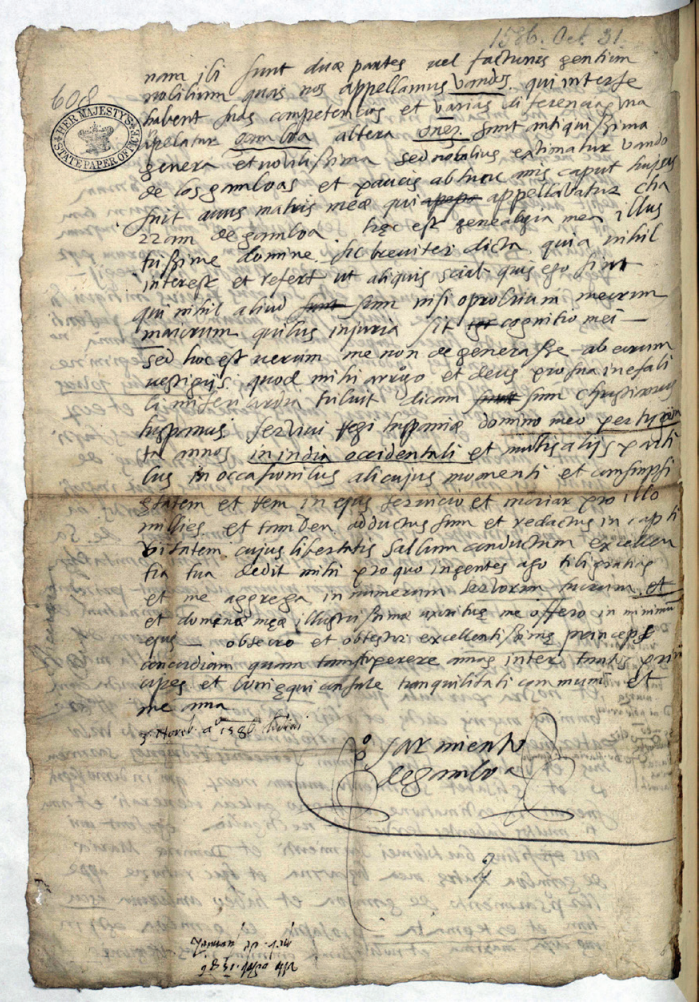 1586. Oct. 31.
608
HER MAJESTY'S
STATE PAPER OFFICE
nam ibi sunt duæ partes vel factiones gentium
nobilium quas nos appellamus vandos. qui inter se
habent suas competentias et varias diferencias una
apelatur gamboa altera onez sunt antiquissima
genera et nobilissima sed nobilius extimatur vando
de los gamboas et paucis ab hinc mis caput hujus
fuit avus matris meæ qui appellabatur cha
rram de gamboa hæc est genealogia mea illus
trissime domine sic breviter dicta quia nihil
interest et refert ut aliquis sciat quis ego sim
qui nihil aliud sum nisi oprobrium meorum
maiorum quibus injuria sit cognitio mei
sed hoc est verum me non degenerasse ab eorum
vestigijs quod mihi et deus pro sua inefabi
li misericordia tribuit dicam sum christianus
hispanus servivi regi hispaniæ domino meo per
ta annos in india occidentali et multis alijs parti
bus in occasionibus alicujus momenti et
statem et rem in ejus servicio et moriar pro illo
millies et tandem adductus sum et redactus in capti
vitatem cujus libertatis salvum conductum excellen
tia tua dedit mihi pro quo ingentes ago tibi gratias
et me aggrega in numerum servorum tuorum et
et dominæ meæ illustrissimæ me offero in minimum
ejus obsecro et obtestor excellentissime princeps
concordiam quam inter tantos prin
cipes et boni equi consule tranquilitati communi et
me ama
Novemb. aº 1586
pº sarmiento
de gamboa